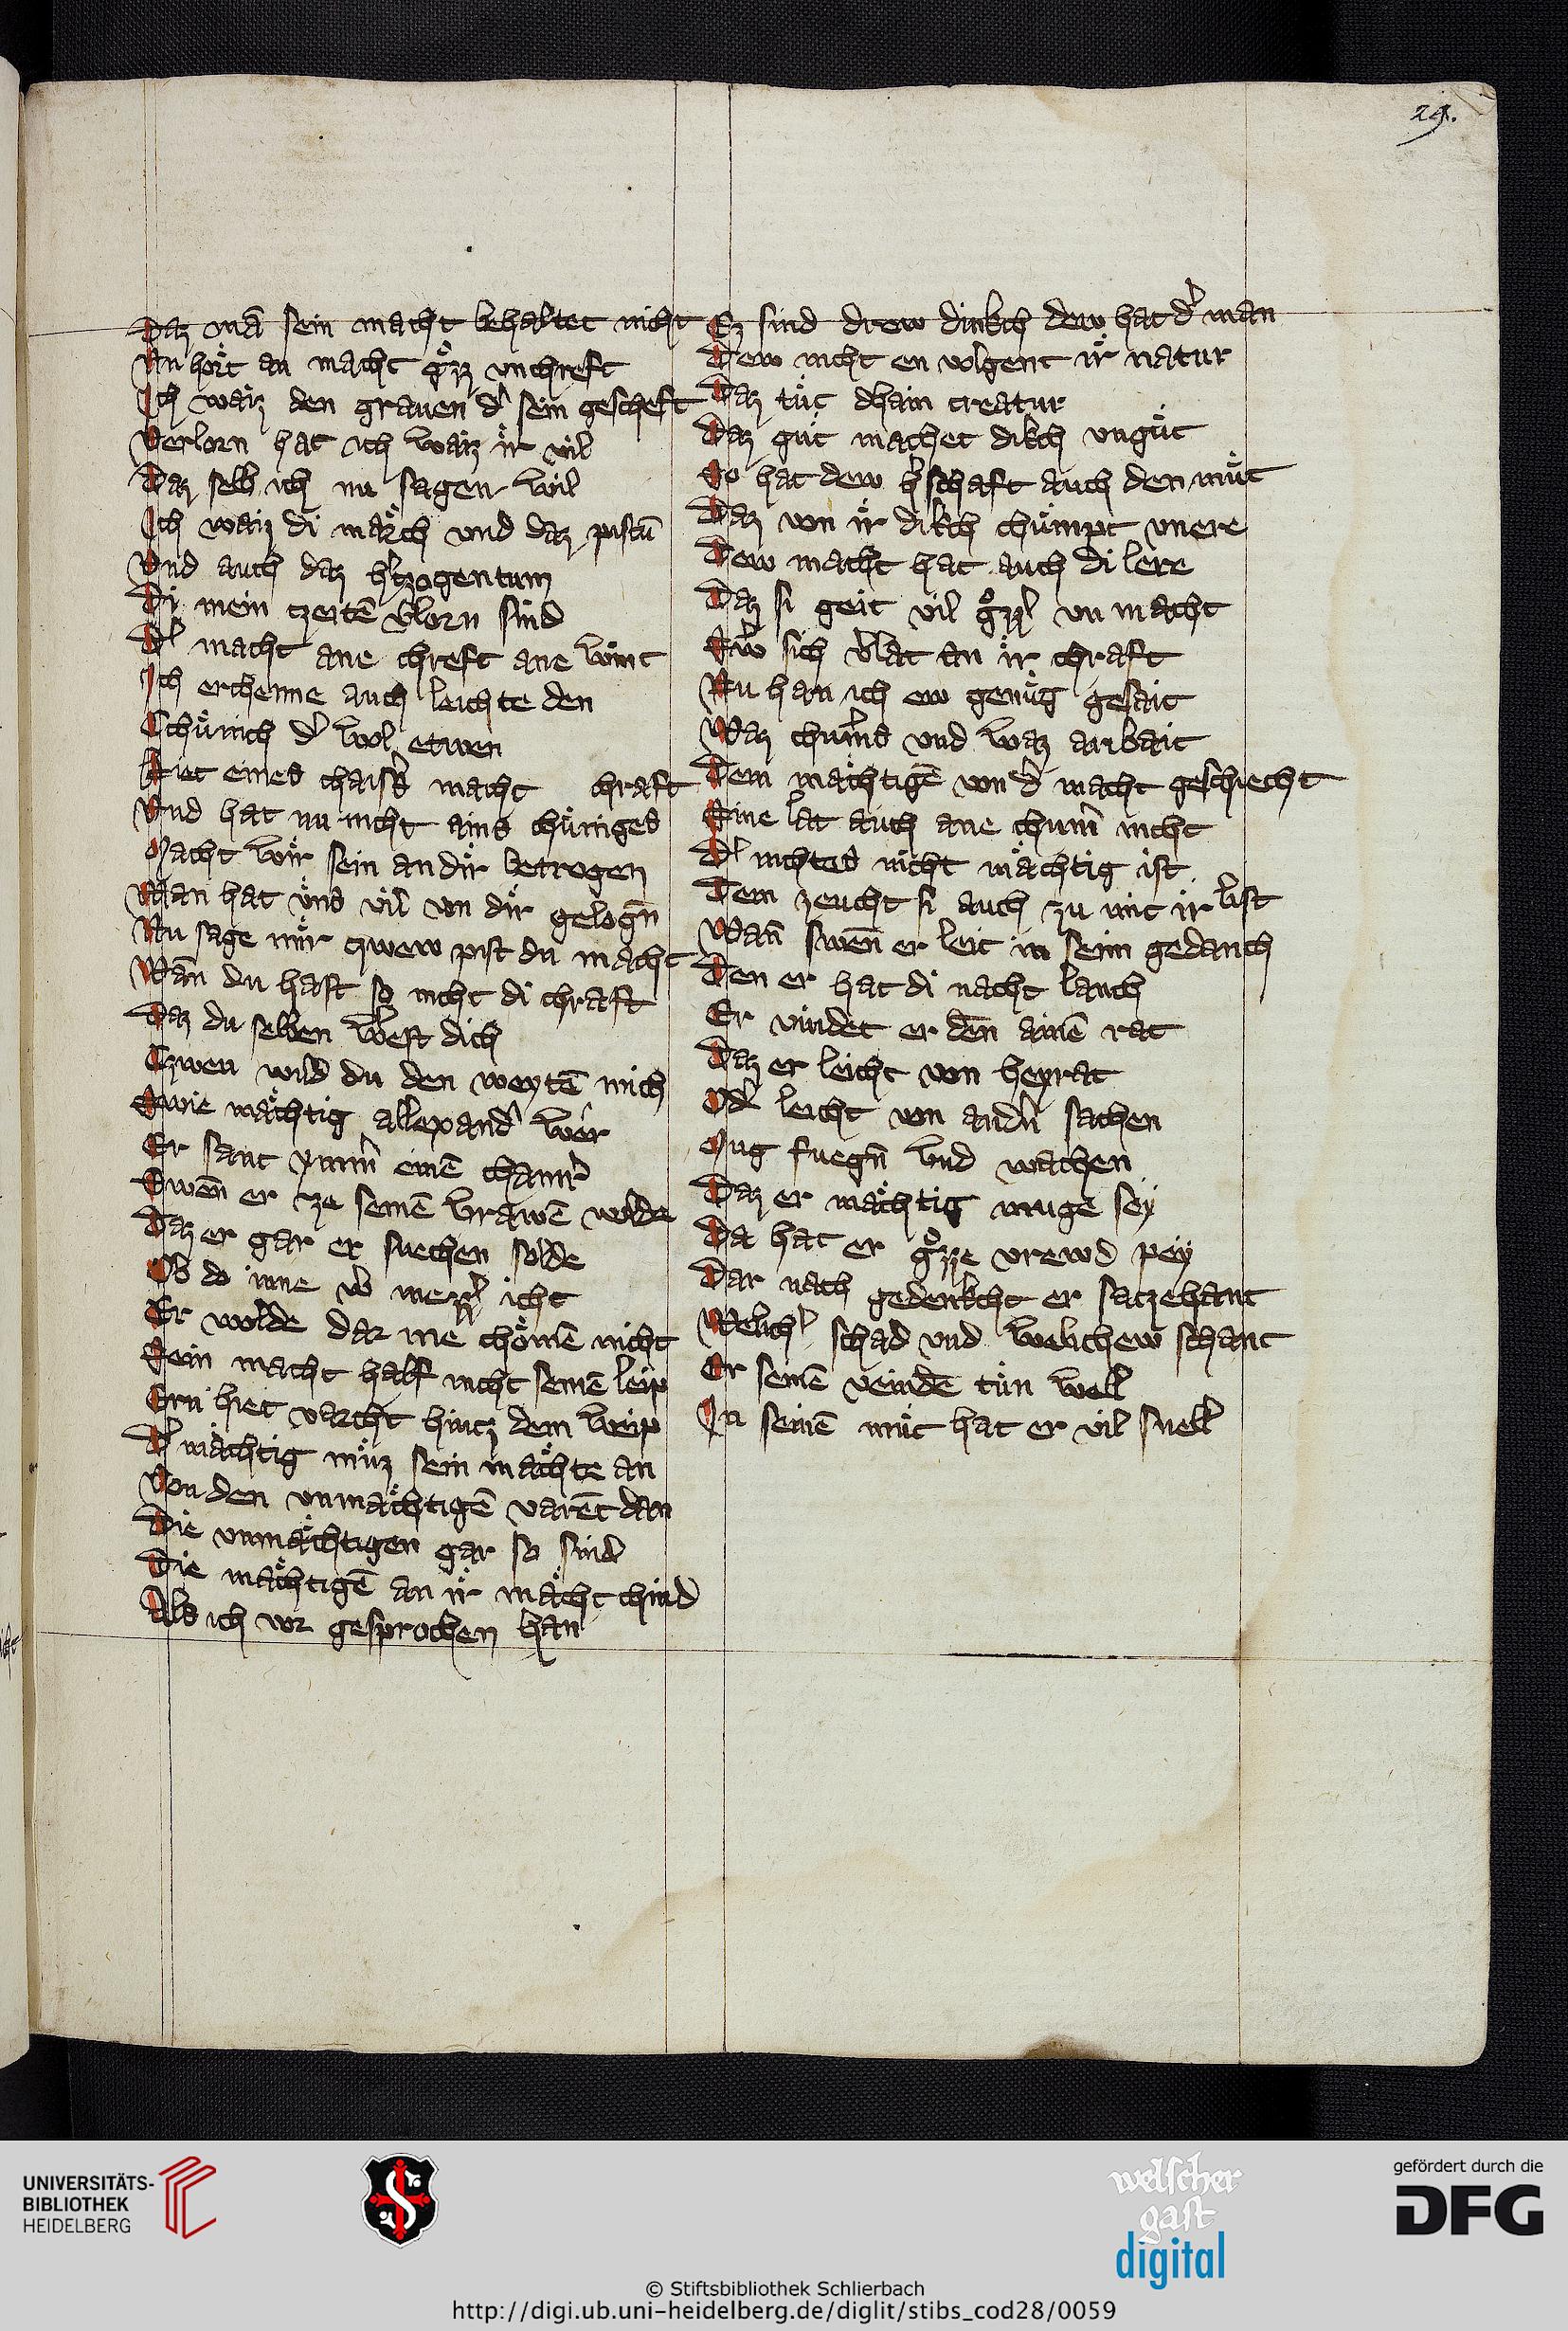 29.
Daz mā sein macht behaltet nicht
Nu hört an macht gͦzz vnchreft
Ich waiz den grauen d' sein gescheft
Verlorn hat ich waiz ir vil
Daz selb ich nu sagen wil
Ich waiz di march vnd daz pistū
Vnd auch daz h'tzogentum
Di mein tzeitē v'lorn sind
D' macht ane chreft ane wint
Ich erchenne auch leichte den
Chünich d' wol etwen
Hiet eines chais's macht chraft
Vnd hat nu nicht ains chüniges
Macht wir sein an dir betrogen
Man hat vns vil von dir gelogn̄
Nu sage mir tzwew pist du macht
Wan̄ du hast so nicht di chraft
Daz du selben west dich
Tzweu wild du den weytē mich
Swie mächtig allexand' wer
Er sant ymm' einē cham'r
Swen̄ er ze seinē vrawē wolde
Daz er gar er suechen solde
Ob do inne w' mezz' icht
Er wolde dar inne chömē nicht
Sein macht half nicht seinē leip
Ern hiet varcht hintz dem weip
D' mächtig müz sein mächte an
Von den vnmächtigē varēt dan
Die vnmächtigen gar so sind
Die mächtigē an ir mächt chind
Als ich vor gesprochen han
Ez sind drew dinkch dew hat d' man
Dew nicht en volgent ir natur
Daz tüt dhain creatur
Daz güt machet dikch vngüt
So hat dew h'schaft auch den müt
Daz von ir dikch chümpt vnere
Dew macht hat auch di lere
Daz si geit vil gͦzz' vn macht
Sw' sich v'lat an ir chraft
Nu han ich ew genüg gesait
Waz chum's vnd waz arbait
Dem mächtigē von d' macht geschiecht
Sine lat auch ane chum' nicht
D' nichtes nicht mächtig ist
Dem zeucht si auch zu mit ir list
Wan̄ swen̄ er leit in seim gedanch
Den er hat di nacht lanch
Er vindet er den̄ ainē rat
Daz er leicht von heyrat
Od' leicht von and'n sachen
Mug fuegn̄ vnd machen
Daz er mächtig muge sey
Da hat er gͦzze vrewd pey
Dar nach gedenkcht er satzehant
Welich' schad vnd welichew schant
Er seinē veindē tün well
In seinē müt hat er vil snell
UNIVERSITÄTS-
BIBLIOTHEK
HEIDELBERG
S
welscher
gast
digital
gefördert durch die
DFG
© Stiftsbibliothek Schlierbach
http://digi.ub.uni-heidelberg.de/diglit/stibs_cod28/0059